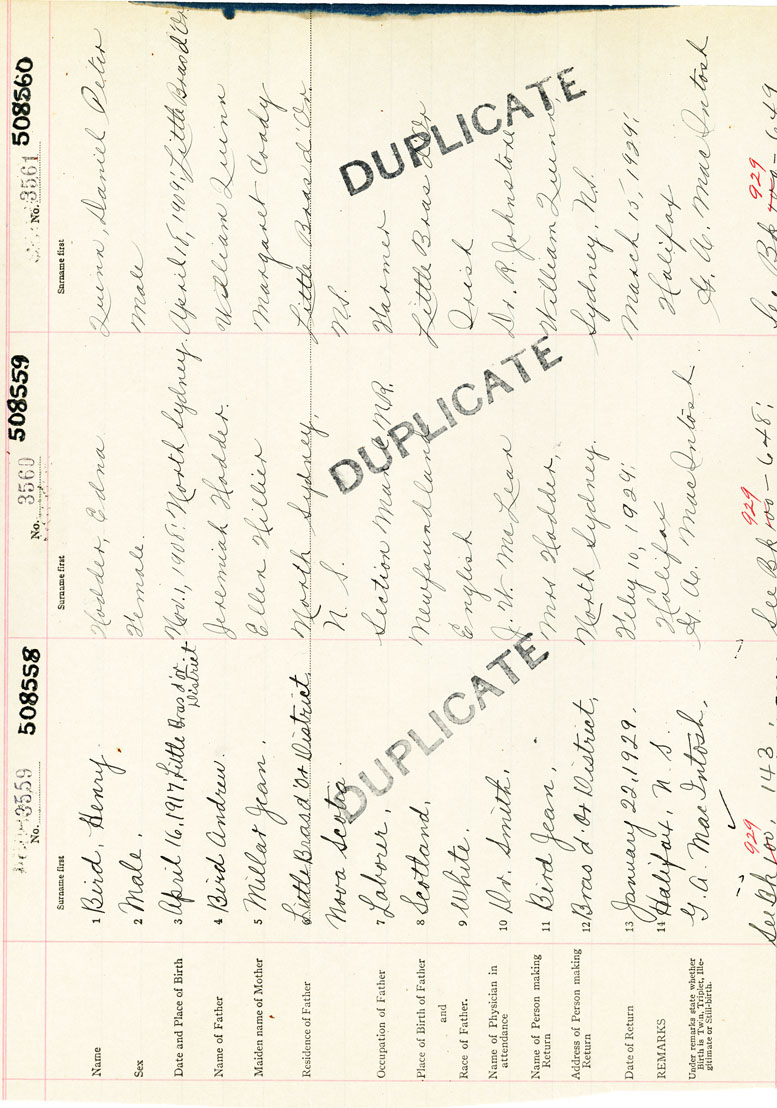 No. 3559 508558 No. 3560 508559 No. 3561 508560
Surname first Surname first Surname first
Name 1 Bird, Henry. Hodder, Edna Quinn, Daniel Peter
Sex 2 Male. Female. Male
Date and Place of Birth 3 April 16, 1917, Little Bras d'Or District Nov. 1, 1908; North Sydney. April 8, 1909; Little Bras d'Or
Name of Father 4 Bird Andrew. Jeremiah Hodder. William Quinn
Maiden name of Mother 5 Millar Jean. Ellen Hillier Margaret Coady
Residence of Father 6 Little Bras d'Or District, North Sydney, Little Bras d'Or.
Nova Scotia. N. S. NS.
Occupation of Father 7 Laborer. Section Man NR Farmer
Place of Birth of Father 8 Scotland. Newfoundland Little Bras d'Or
and
Race of Father. 9 White. English Irish
Name of Physician in attendance 10 Dr. Smith. J. W. McLean Dr. R. Johnstone
Name of Person making Return 11 Bird Jean. Mrs Hodder. William Quinn
Address of Person making Return 12 Bras d'Or District. North Sydney. Sydney, NS.
Date of Return 13 January 22, 1929. Feby 10, 1929; March 15, 1929;
REMARKS 14 Halifax, N. S. Halifax Halifax
Under remarks state whether Birth is Twin, Triplet, Illegitimate or Still-birth. G. A. MacIntosh. G. A. MacIntosh G. A. MacIntosh
929 929 929
See Bk 100, 143 See Bk 100-648; See Bk 100-649
DUPLICATE
DUPLICATE
DUPLICATE